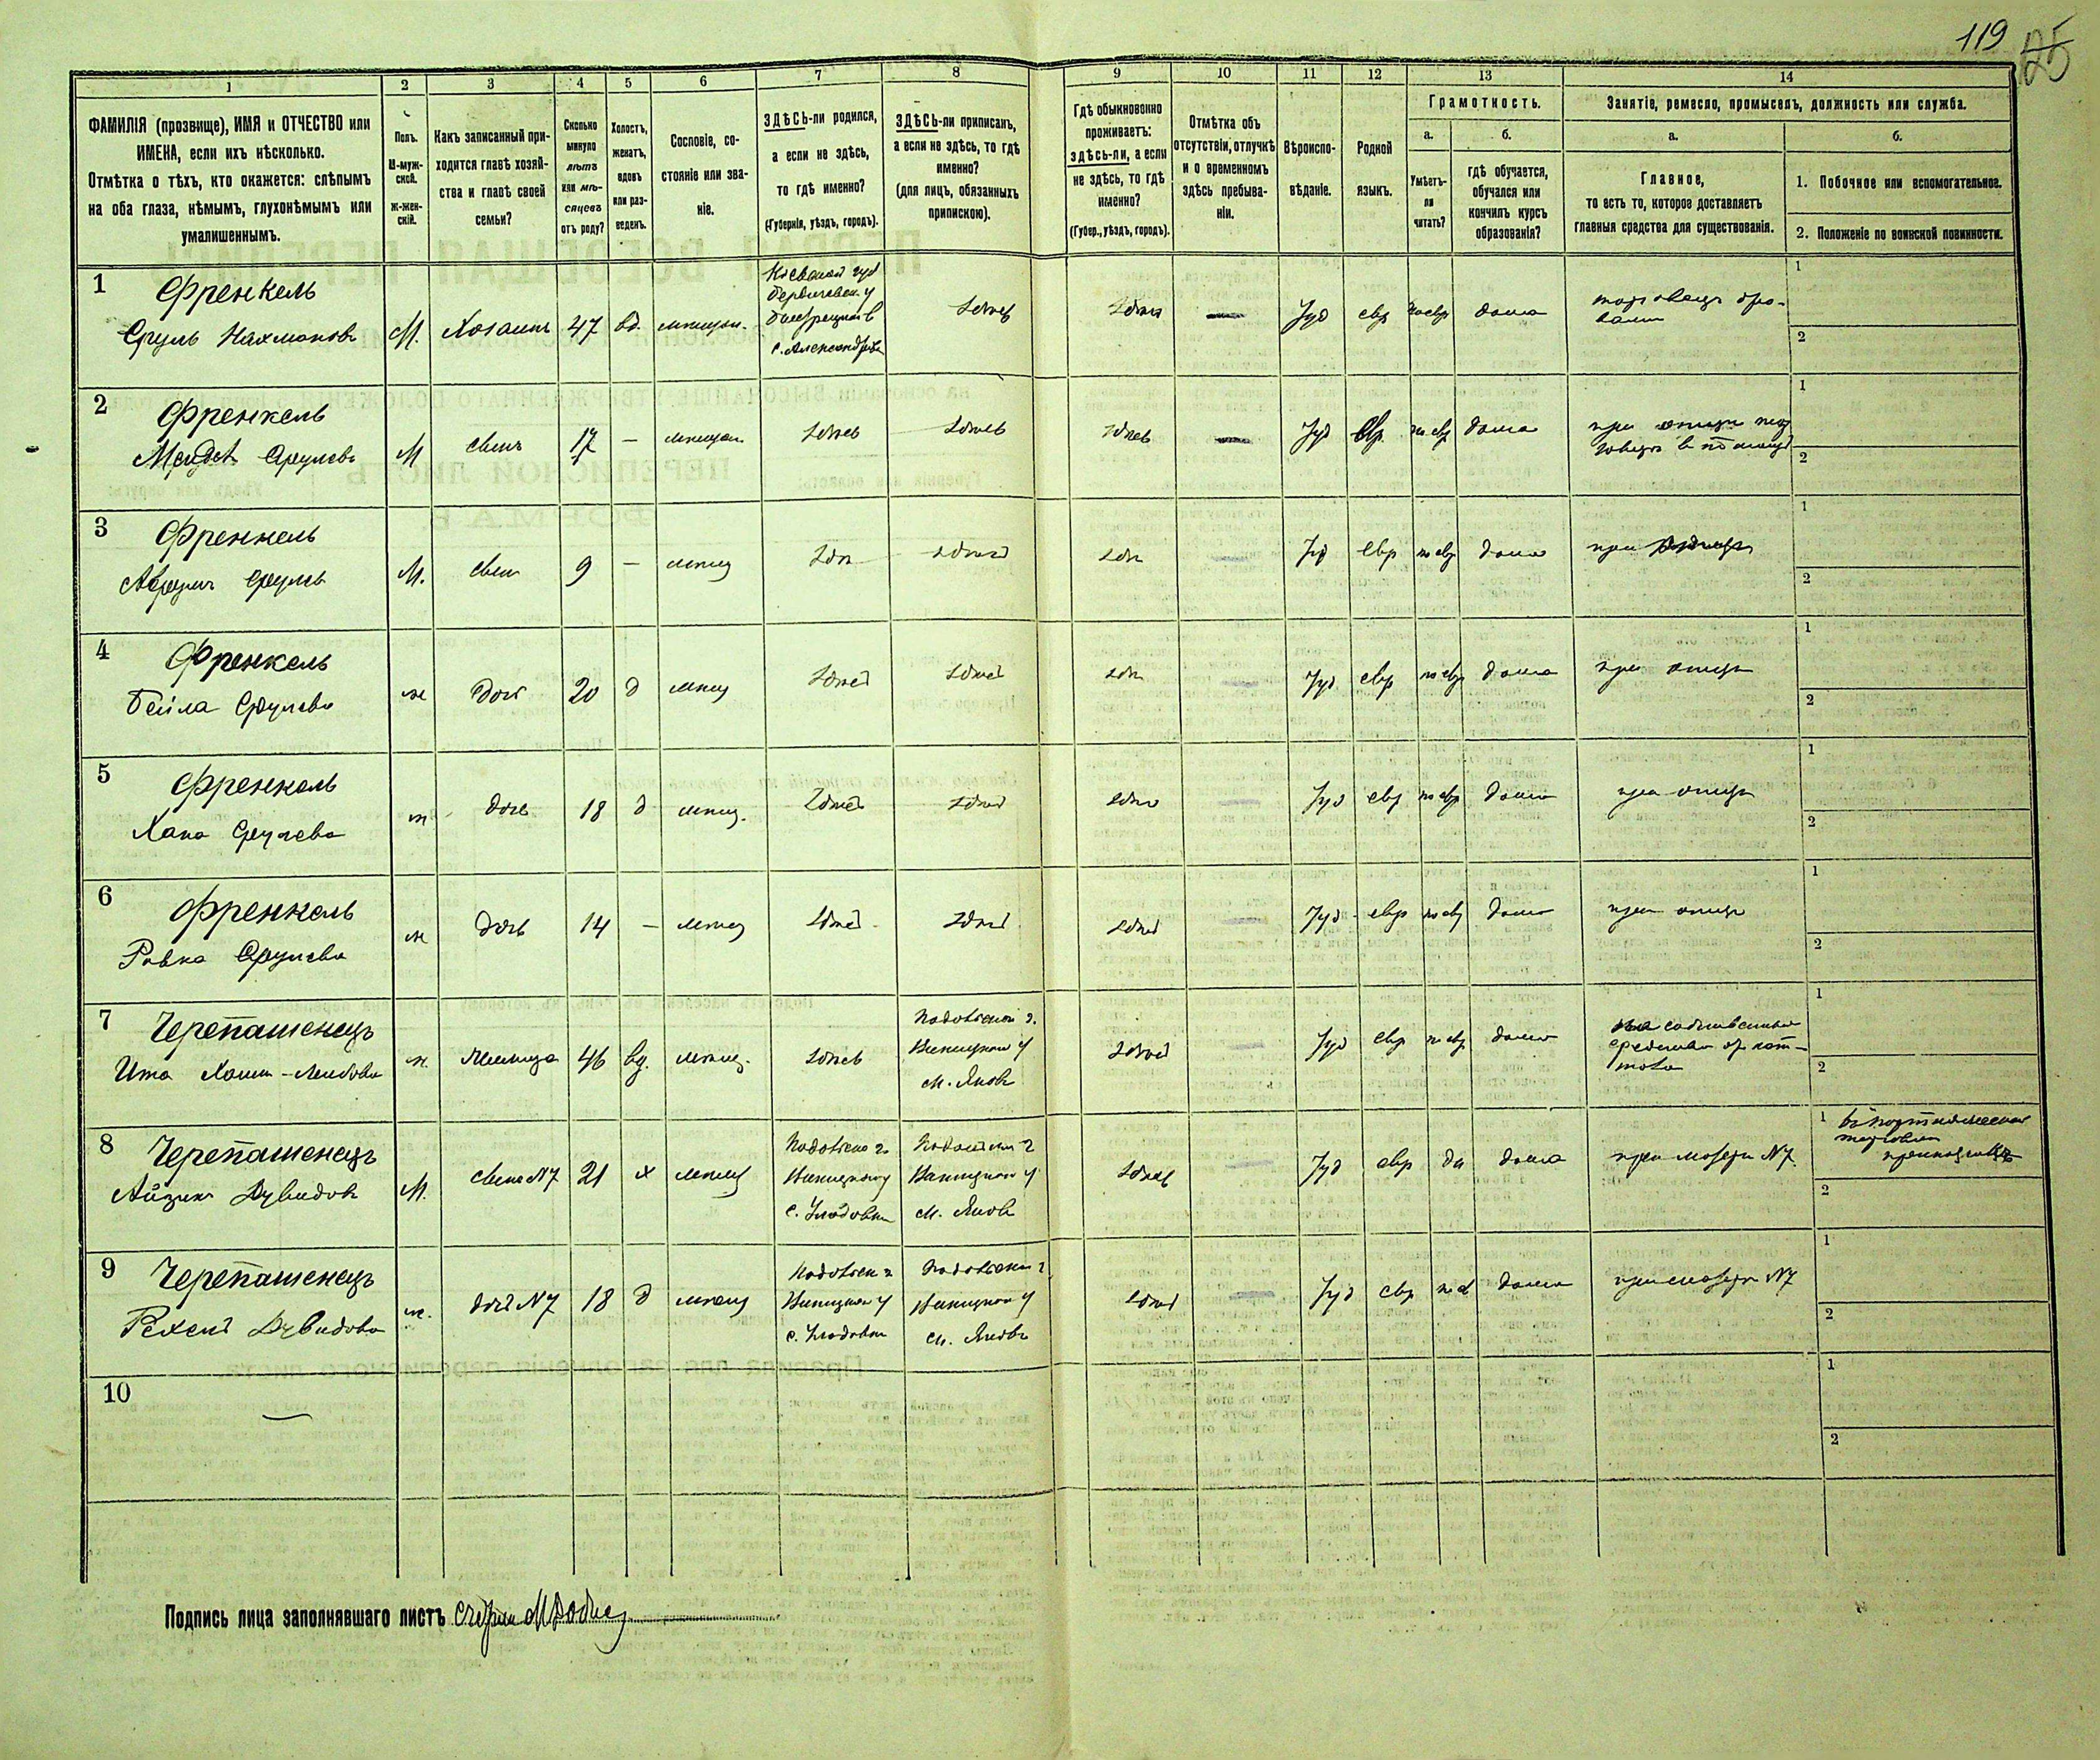 119 25
1 2 3 4 5 6 7 8 9 10 11 12 13 14
ФАМИЛІЯ (прозвище), ИМЯ и ОТЧЕСТВО или
ИМЕНА, если ихъ нѣсколько.
Отмѣтка о тѣхъ, кто окажется: слѣпымъ
на оба глаза, нѣмымъ, глухонѣмымъ или
умалишеннымъ.
Полъ.
М-муж-
ской.
Ж-жен-
скій.
Какъ записанный при-
ходится главѣ хозяй-
ства и главѣ своей
семьи?
Сколько
минуло
лѣтъ
или мѣ-
сяцевъ
отъ роду?
Холостъ,
женатъ,
вдовъ
или раз-
веденъ.
Сословіе, со-
стояніе или зва-
ніе.
ЗДѢСЬ-ли родился,
а если не здѣсь,
то гдѣ именно?
(Губернія, уѣздъ, городъ).
ЗДѢСЬ-ли приписанъ,
а если не здѣсь, то гдѣ
именно?
(для лицъ, обязанныхъ
припискою).
Гдѣ обыкновенно
проживаетъ:
здѣсь-ли, а если
не здѣсь, то гдѣ
именно?
(Губер., уѣздъ, городъ).
Отмѣтка объ
отсутствіи, отлучкѣ
и о временномъ
здѣсь пребыва-
ніи.
Вѣроиспо-
вѣданіе.
Родной
языкъ.
Грамотность.
а.
Умѣетъ-
ли
читать?
б.
гдѣ обучается,
обучался или
кончилъ курсъ
образованія?
Занятіе, ремесло, промыселъ, должность или служба.
а.
Главное,
то есть то, которое доставляетъ
главныя средства для существованія.
б.
1. Побочное или вспомогательное.
2. Положеніе по воинской повинности.
1 Френкель
Сруль Нахмановъ М. Хозяинъ 47 вд. мещан.
Кіевской губ
Бердичевск. у
с. Александровка
здѣсь здѣсь — Іуд евр по евр дома
торговецъ дро-
вами
1
2
2 Френкель
Мендель Срулевъ М сынъ 17 — мещан здѣсь здѣсь здѣсь — Іуд евр. по евр дома
при отцѣ
1
2
3 Френкель
Аврумъ Срулевъ М. сынъ 9 — мещ здѣсь здѣсь здѣсь — Іуд евр по евр дома при отцѣ
1
2
4 Френкель
Бейла Срулева ж дочь 20 д мещ здѣсь здѣсь здѣсь — Іуд евр по евр дома при отцѣ
1
2
5 Френкель
Хана Срулева ж дочь 18 д мещ. здѣсь здѣсь здѣсь — Іуд евр по евр дома при отцѣ
1
2
6 Френкель
Ривка Срулева ж дочь 14 — мещ здѣсь здѣсь здѣсь — Іуд евр по евр дома при отцѣ
1
2
7 Черепашенецъ
Ита Хаим-Лейбова ж. 46 вд. мещ. здѣсь
Подольской г.
Винницкаго у
м. Яновъ
здѣсь Іуд евр по евр дома
1
2
8 Черепашенецъ
Айзикъ Дувидовъ М. сынъ №7 21 х мещ
Подольской г.
Винницкаго у
с. Уладовки
Подольской г
Винницкаго у
м. Яновъ
здѣсь Іуд евр да дома при матери №7.
1
2
9 Черепашенецъ
Рехель Дувидова ж. дочь №7 18 д мещ
Подольск г
Винницкаго у
с. Уладовки
Подольской г
Винницкаго у
м. Яновъ
здѣсь Іуд евр дома при матери №7
1
2
10 —
1
2
Подпись лица заполнявшаго листъ